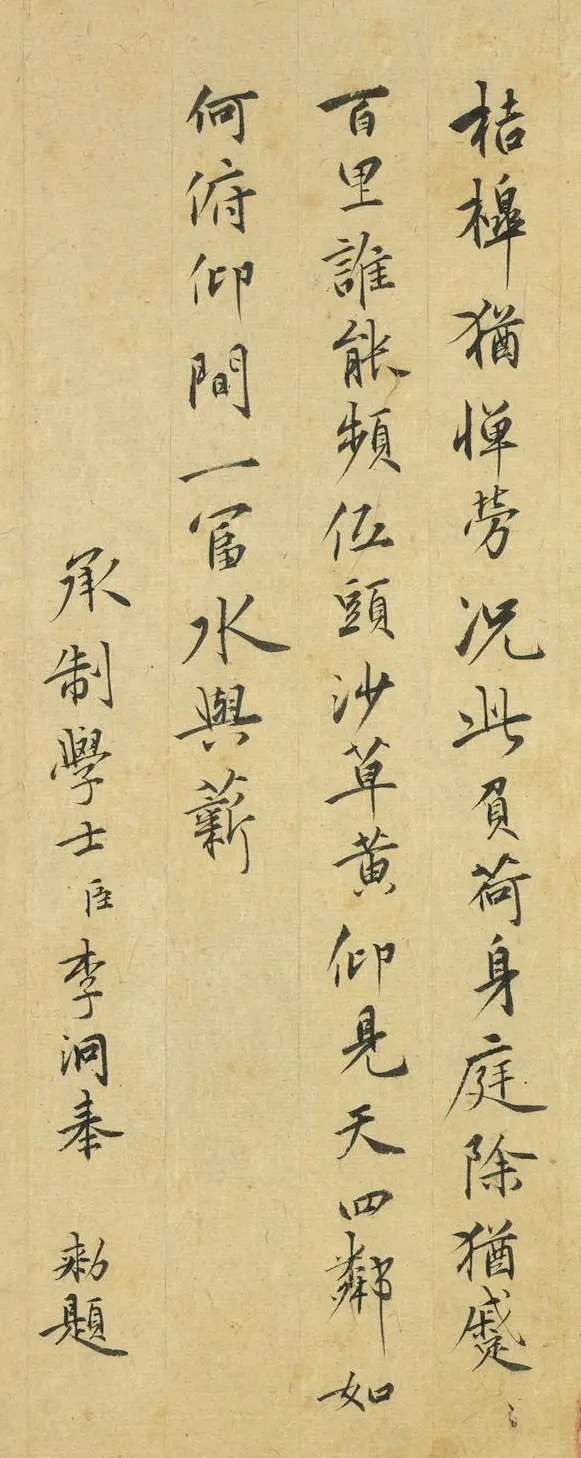 桔槔猶憚勞況此負荷身庭除猶蹙〻
百里誰能頻低頭沙草黃仰見天四鄰如
何俯仰間一冨水與薪
承制學士臣李泂奉 敕題